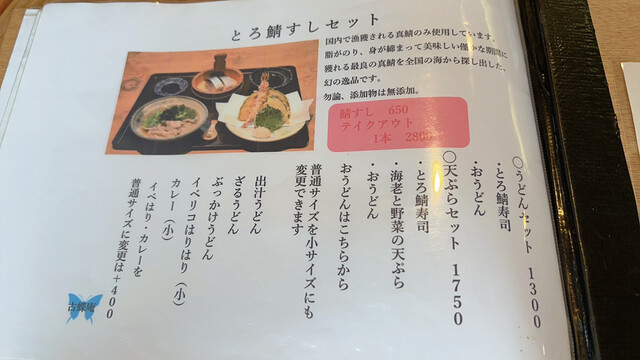 とろ鯖すしセット
国内で漁獲される真鯖のみ使用しています。
脂がのり、身が締まって美味しい僅かな期間に
獲れる最良の真鯖を全国の海から探し出した、
幻の逸品です。
勿論、添加物は無添加。
鯖すし 650
テイクアウト
1本 2800
〇うどんセット 1300
・とろ鯖寿司
・おうどん
〇天ぷらセット 1750
・とろ鯖寿司
・海老と野菜の天ぷら
・おうどん
おうどんはこちらから
普通サイズを小サイズにも
変更できます
出汁うどん
ざるうどん
ぶっかけうどん
イベリコはりはり(小)
カレー(小)
イベはり・カレーを
普通サイズに変更は+400
古蝶庵